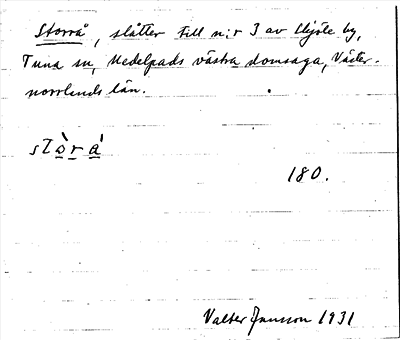 Storrå, slåtter till n:r 3 av Vigste by,
Tuna sn, Medelpads västra domsaga, Väster-
norrlands län.
stò̱ṟa̱̍
180.
Valter Jansson 1931